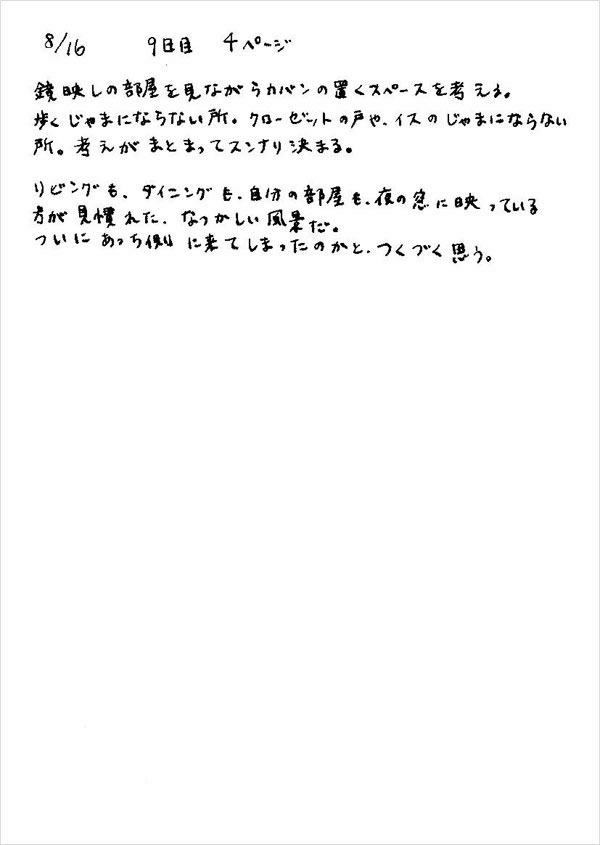 8/16 9日目 4ページ
鏡映しの部屋を見ながらカバンの置くスペースを考える。
歩くじゃまにならない所。クローゼットの戸や、イスのじゃまにならない
所。考えがまとまってスンナリ決まる。
リビングも、ダイニングも、自分の部屋も、夜の窓に映っている
方が見慣れた、なつかしい風景だ。
ついにあっち側に来てしまったのかと、つくづく思う。